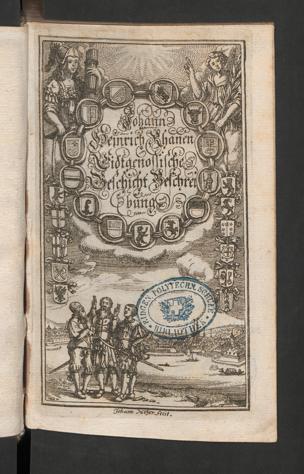 Johann
Heinrich Rhanen
Eidtgenoßische
Geschicht Beschrei
bung
EIDGEN. POLYTECHN. SCHULE
Johann Meÿer fecit.